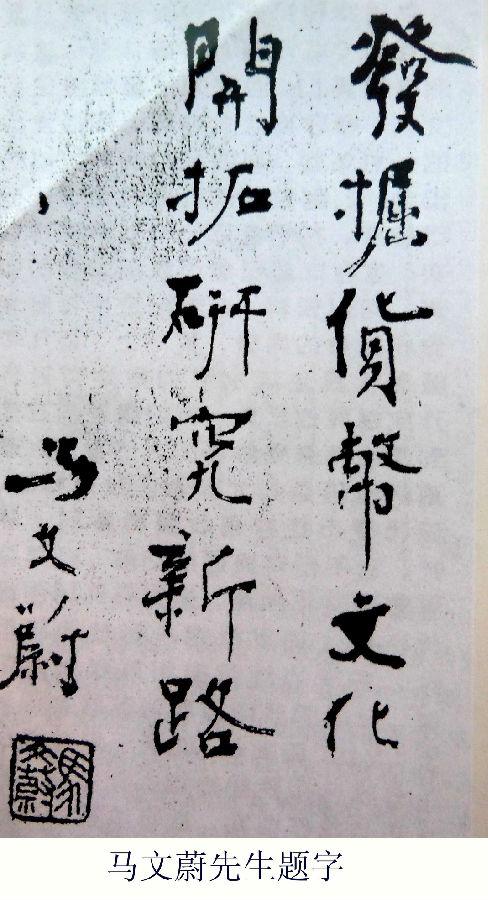 發掘貨幣文化
開拓研究新路
马文蔚
馬文蔚
马文蔚先生题字